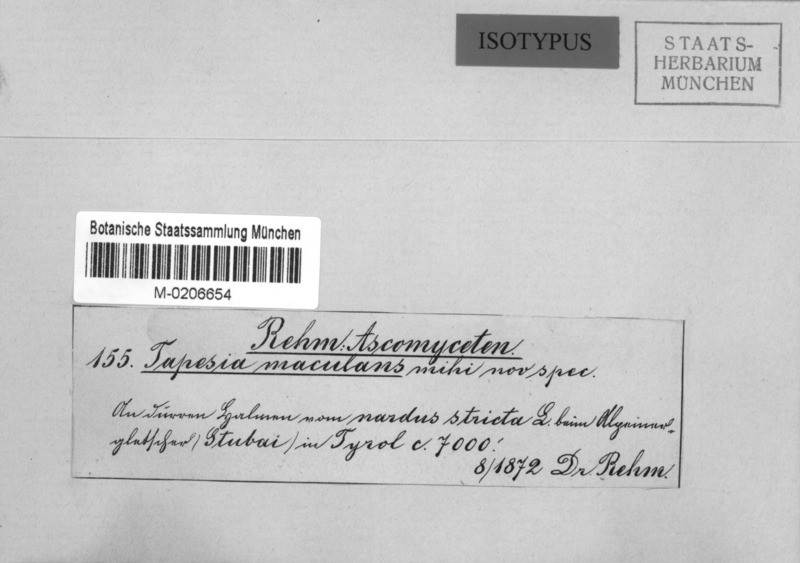 ISOTYPUS
STAATS-
HERBARIUM
MÜNCHEN
Botanische Staatssammlung München
M-0206654
Rehm: Ascomyceten.
155. Tapesia maculans mihi nov spec.
An dürren Halmen vom nardus stricta L. beim Alpeiner-
gletscher (Stubai) in Tyrol c. 7000'.
8/1872 Dr Rehm.